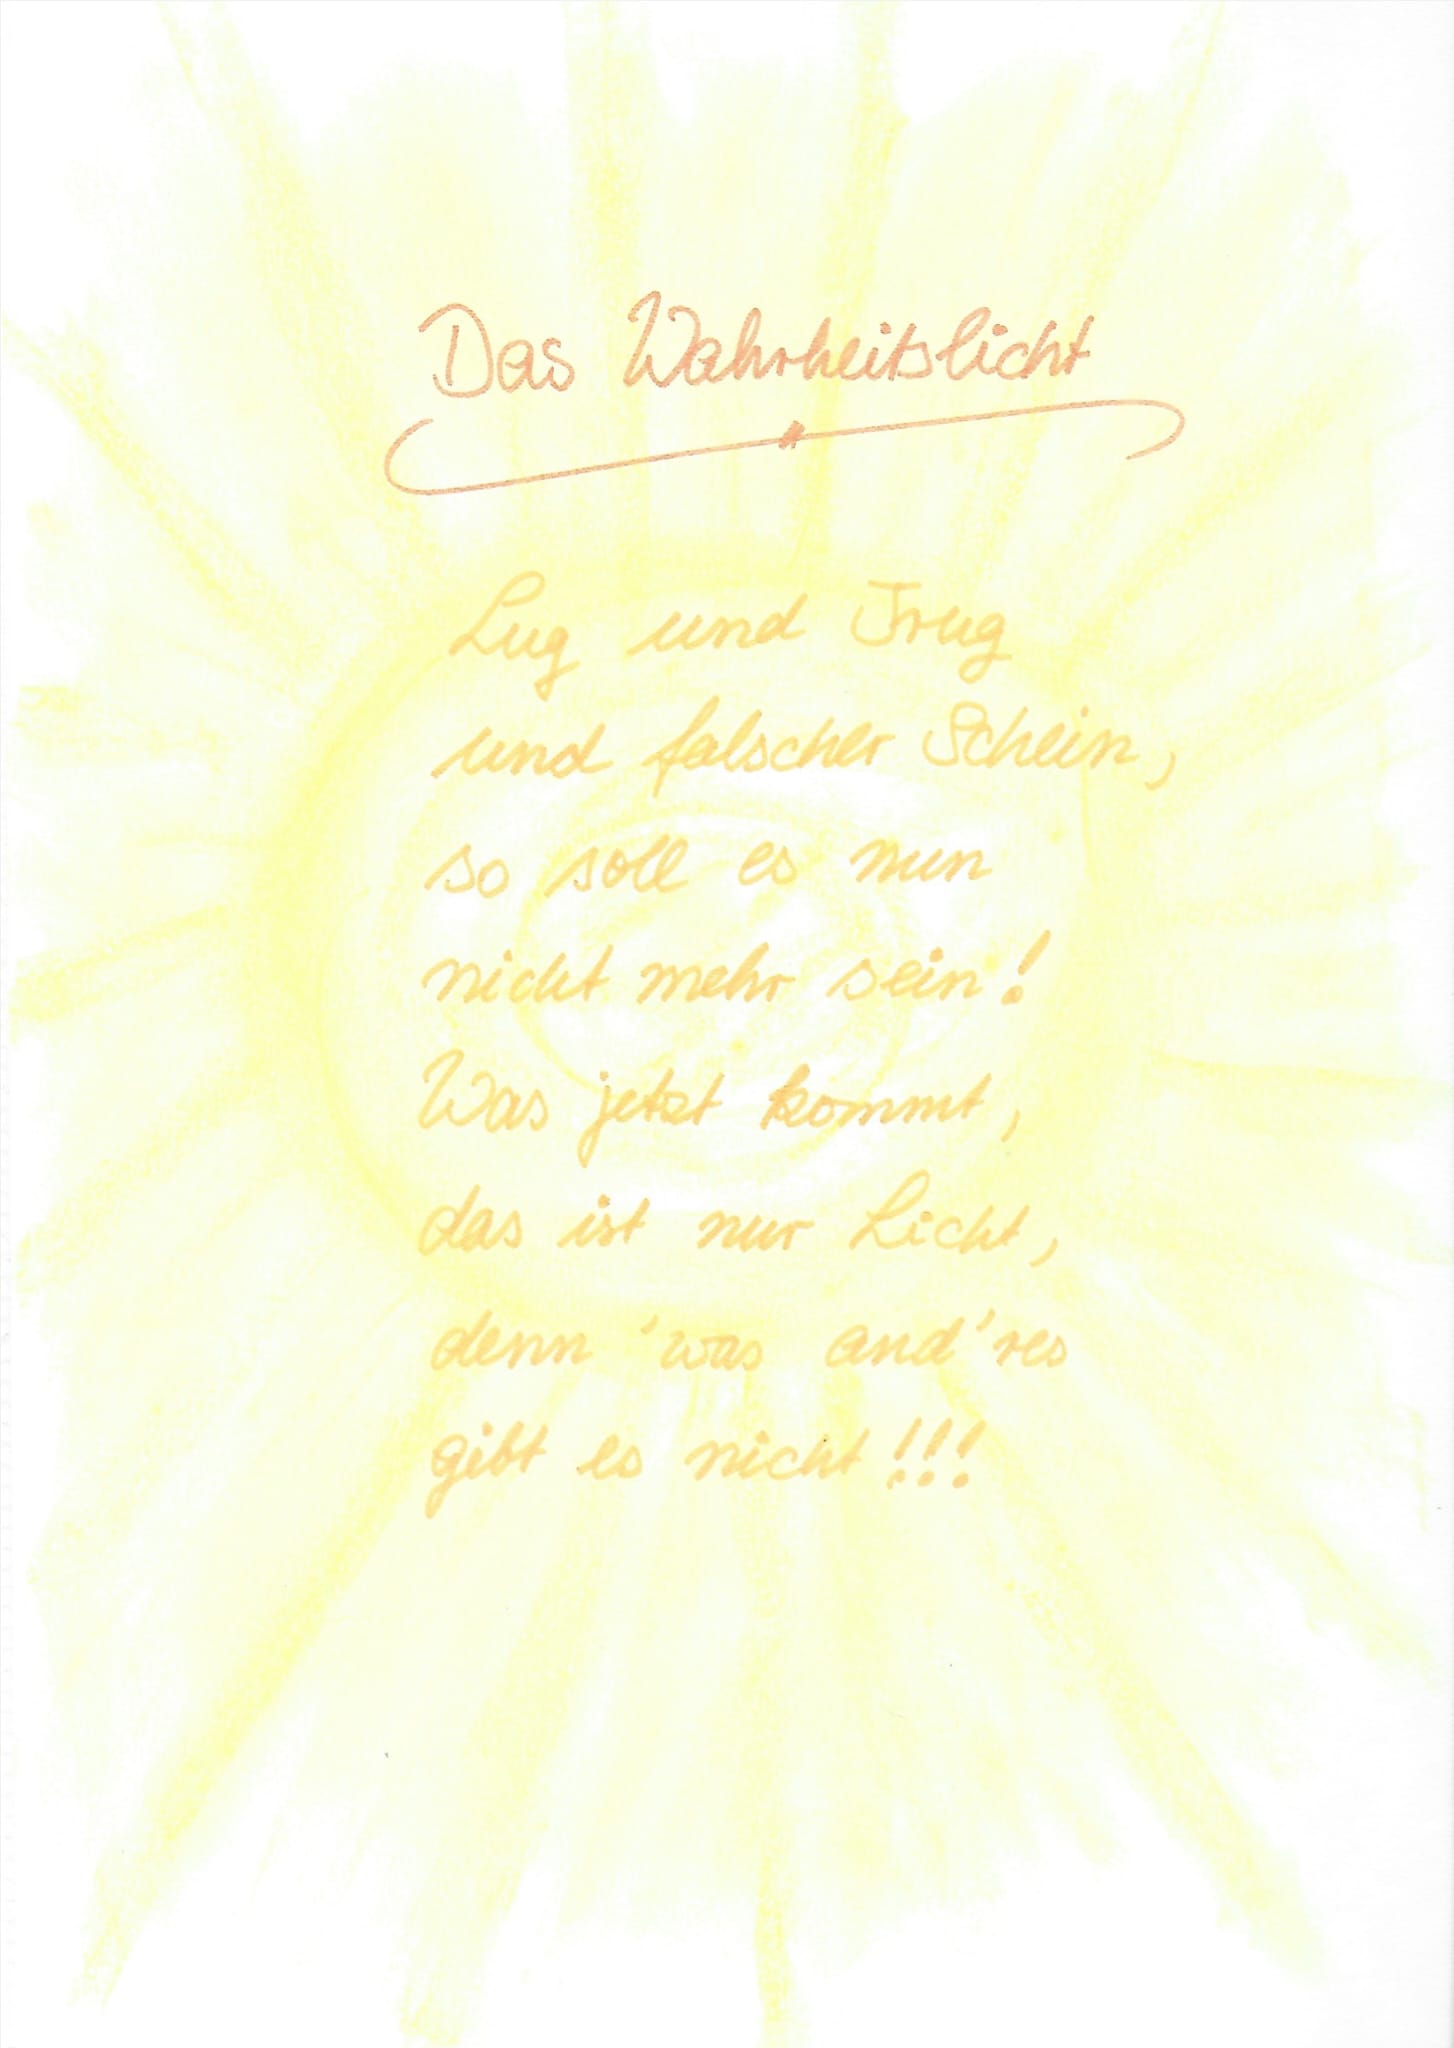 Das Wahrheitslicht
Lug und Trug
und falscher Schein,
so soll es nun
nicht mehr sein!
Was jetzt kommt,
das ist nur Licht,
denn 'was and'res
gibt es nicht!!!